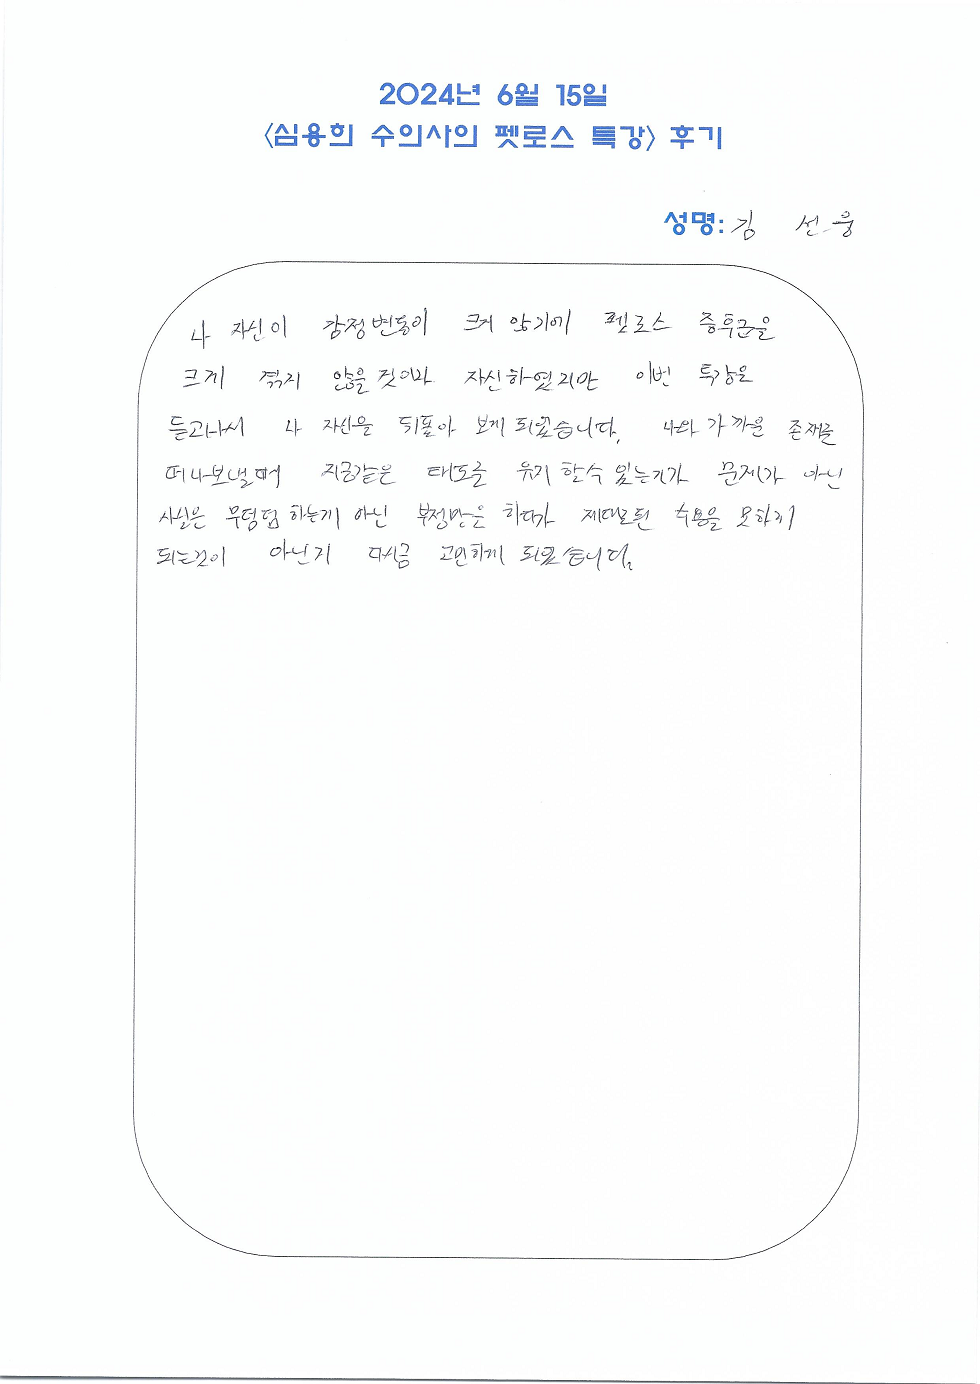 2024년 6월 15일
<심용희 수의사의 펫로스 특강> 후기
성명: 김 선웅
나 자신이 감정변동이 크지 않기에 펫로스 증후군을
크게 겪지 않을 것이라 자신하였지만 이번 특강을
듣고나서 나 자신을 되돌아 보게 되었습니다. 나와 가까운 존재를
떠나보낼때 지금같은 태도를 유지 할수 있는지가 문제가 아닌
사실은 무덤덤 하는게 아닌 부정만은 하다가 제대로된 수용을 못하게
되는것이 아닌지 다시금 고민하게 되었습니다.